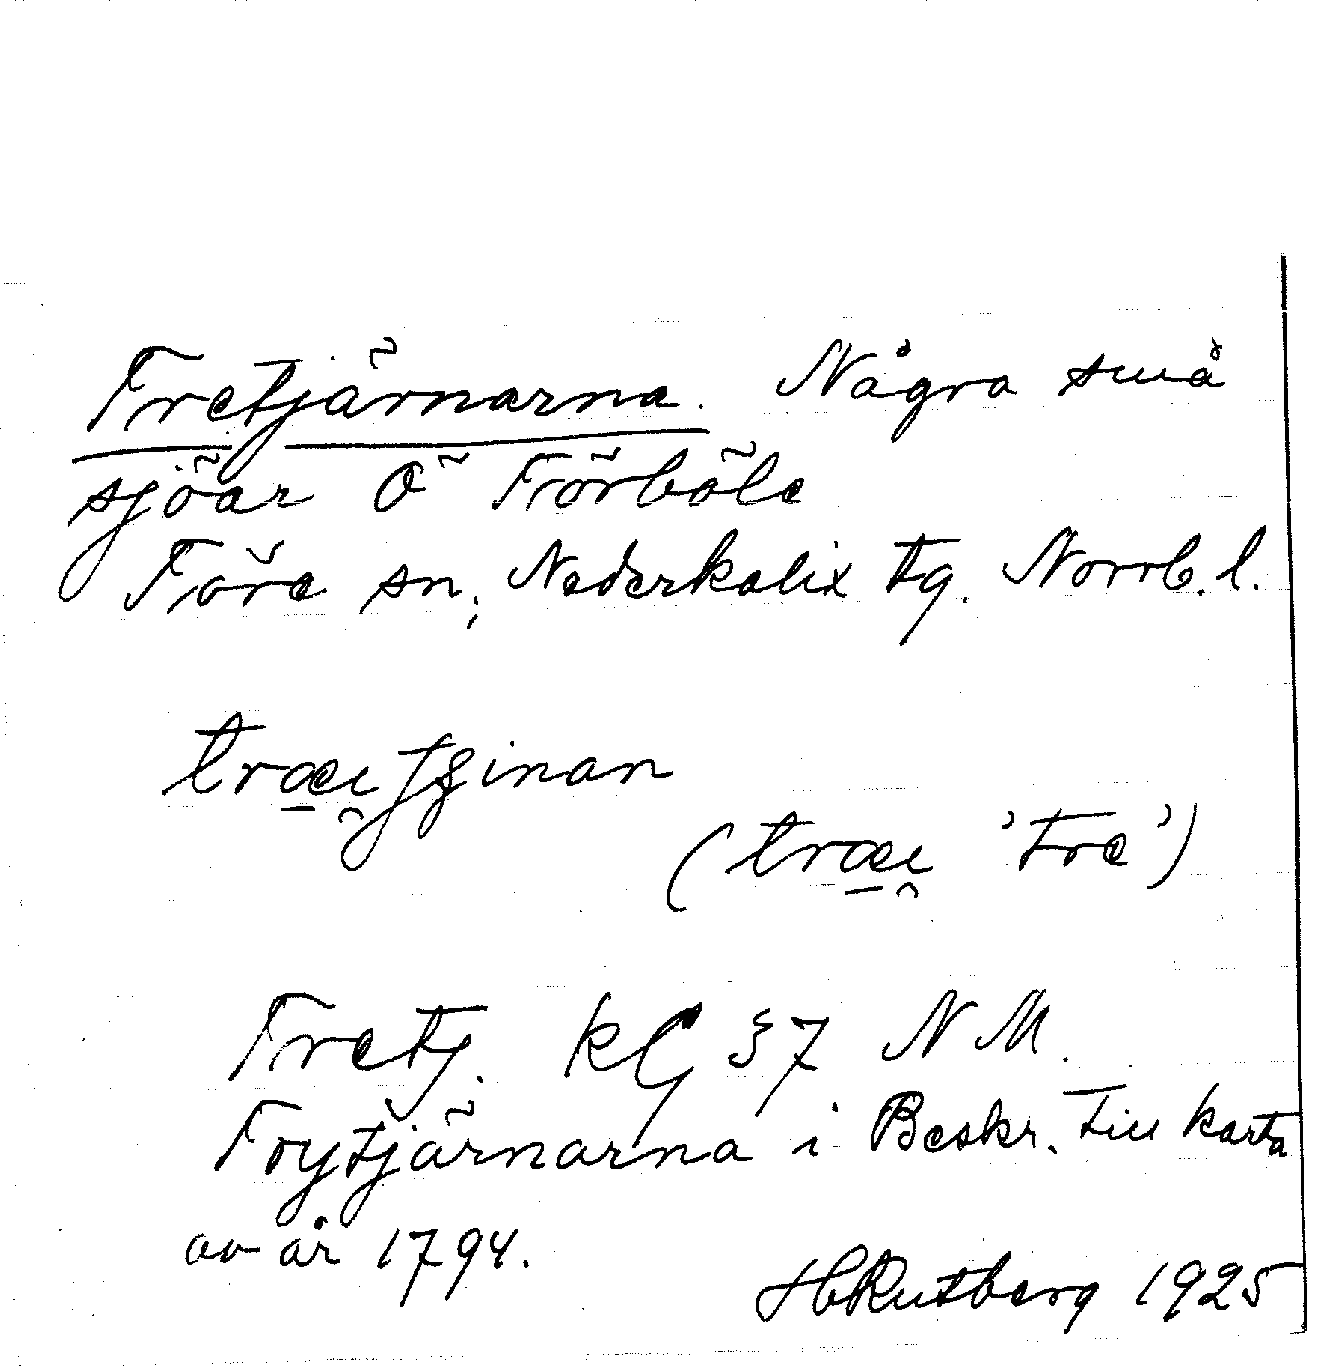 Tretjärnarna. Några små
sjöar Ö Törböle
Töre sn, Nederkalix tg. Norrb. l.
træi̯tʃinan
(træi̯ 'tre')
Tretj. kG 37 NM.
Troytjärnarna i Beskr. till karta
av år 1794.
HRutberg 1925